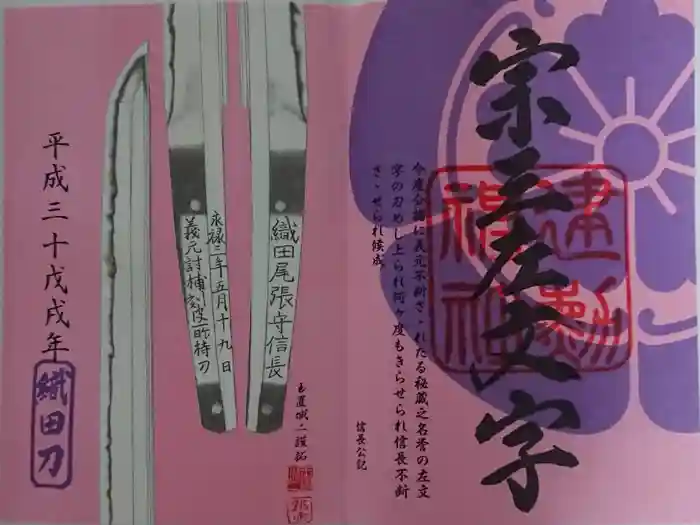 宗三左文字
建勲
神社
今度分捕に義元不断さゝれたる秘蔵之名誉の左文
字の刀めし上られ何ヶ度もきらせられ信長不断
さゝせられ候成
信長公記
織田尾張守信長
永禄三年五月十九日
義元討捕刻彼所持刀
玉置城二謹拓
平成三十戊戌年
織田刀